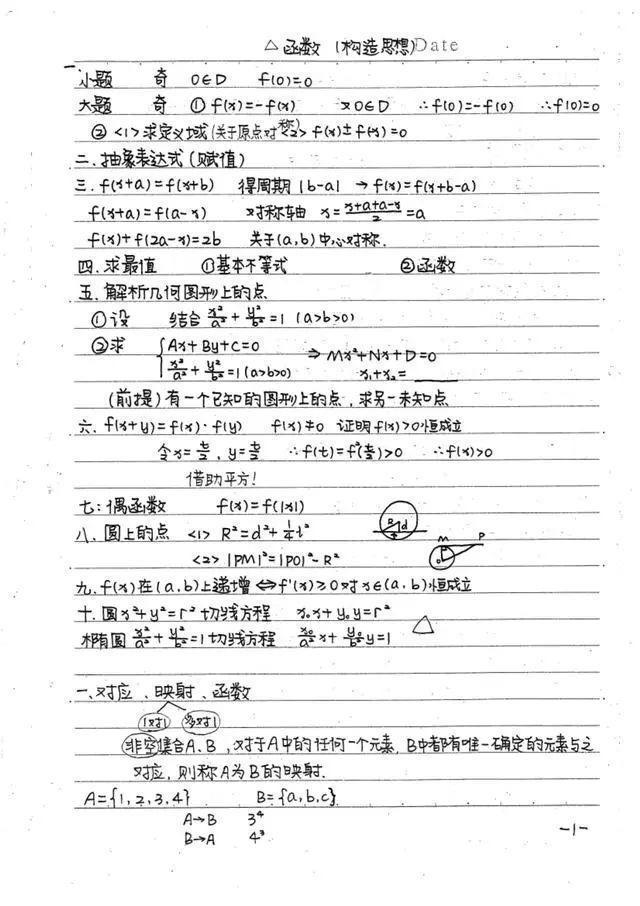 △函数 (构造思想) Date
一
小题 奇 O∈D f(0)=0
大题 奇 ① f(x)=-f(x) 又O∈D ∴f(0)=-f(0) ∴f(0)=0
② <1>求定义域(关于原点对称) <2> f(x)±f(-x)=0
二.抽象表达式(赋值)
三.f(x+a)=f(x+b) 得周期 |b-a| → f(x)=f(x+b-a)
f(x+a)=f(a-x) 对称轴 x=(x+a+a-x)/2=a
f(x)+f(2a-x)=2b 关于(a,b)中心对称.
四.求最值 ①基本不等式 ②函数
五.解析几何图形上的点
①设 结合 x²/a²+y²/b²=1 (a>b>0)
②求 {Ax+By+C=0 ⇒ Mx²+Nx+D=0
x²/a²+y²/b²=1(a>b>0) x₁+x₂=____
(前提)有一个已知的图形上的点,求另一未知点
六.f(x+y)=f(x)·f(y) f(x)≠0 证明f(x)>0恒成立
令x=t/2,y=t/2 ∴f(t)=f²(t/2)>0 ∴f(x)>0
借助平方!
七:偶函数 f(x)=f(|x|)
八.圆上的点 <1> R²=d²+¼l² R d
<2> |PM|²=|PO|²-R² M P
九.f(x)在(a,b)上递增⇔f'(x)≥0对x∈(a,b)恒成立
十.圆x²+y²=r²切线方程 x₀x+y₀y=r²
椭圆 x²/a²+y²/b²=1切线方程 x₀/a² x+y₀/b² y=1 △
一.对应、映射、函数
1对1 多对1
非空集合A、B,对于A中的任何一个元素,B中都有唯一确定的元素与之
对应,则称A为B的映射.
A={1,2,3,4} B={a,b,c}
A→B 3⁴
B→A 4³
-1-